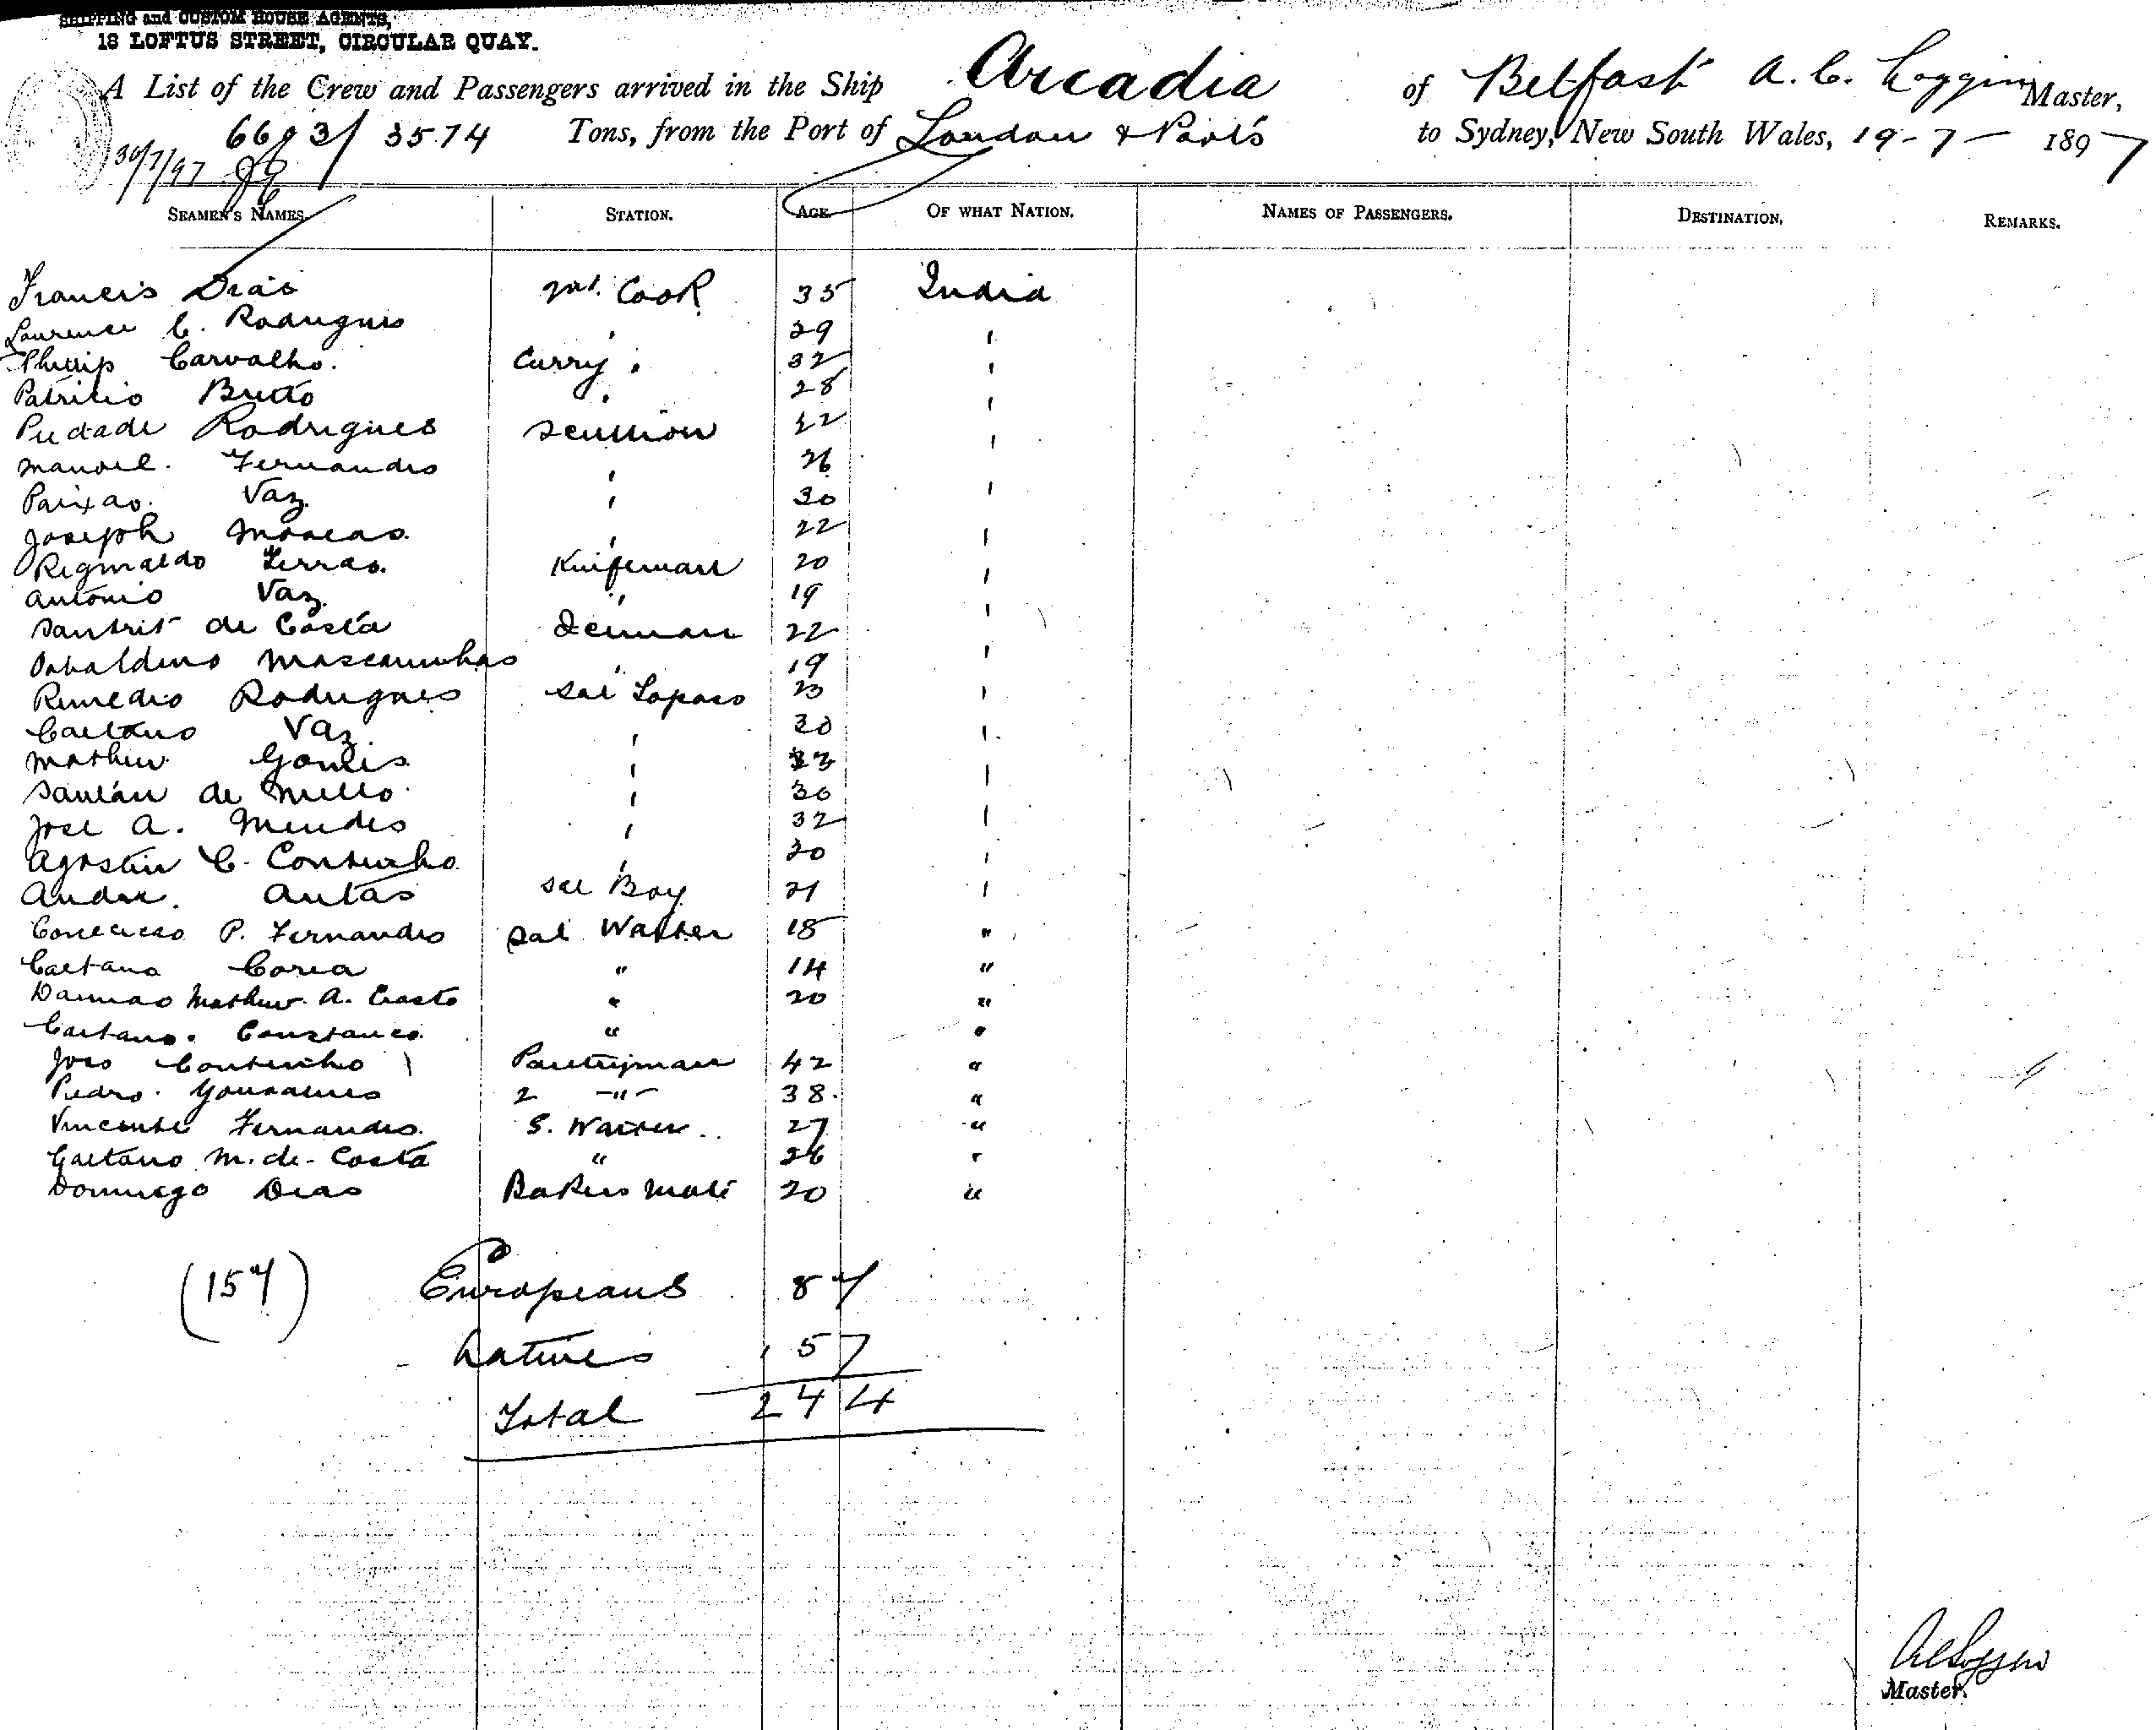 SHIPPING and CUSTOM HOUSE AGENTS,
18 LOFTUS STREET, CIRCULAR QUAY.
A List of the Crew and Passengers arrived in the Ship Arcadia of Belfast A. C. Loggin Master,
6603/3574 Tons, from the Port of London & Ports to Sydney, New South Wales, 19-7- 1897
30/7/97
SEAMEN'S NAMES. STATION. AGE OF WHAT NATION. NAMES OF PASSENGERS. DESTINATION. REMARKS.
Francis Dias Cook 35 India
Laurence C. Rodrigues ' 29 '
Phillip Carvalho. Curry ' 32 '
Patricio Britto ' 28 '
Piedade Rodrigues Scullion 22 '
Manoel. Fernandes ' 26 '
Paixao. Vaz. ' 30 '
Joseph ' 22 '
Reginaldo Ferrao. Knifeman 20 '
Antonio Vaz. ' 19 '
de Costa 22 '
Mascarenhas ' 19 '
Remedio Rodrigues Sal Topass 23 '
Caetano Vaz. ' 30 '
Mathew Gomes ' 33 '
Santan de Mello. ' 30 '
Jose A. Mendes ' 32 '
Agostin C. Continho. ' 30 '
Andre. Antao Sal Boy 21 '
Conceicao P. Fernandes Sal Waiter 18 "
Caetano Corea " 14 "
Damiao Mathew. A. Crasto " 20 "
Caetano. " "
Joao Continho Pantryman 42 "
Pedro. Gonsalves 2 -"- 38. "
Vincente Fernandes. S. Waiter.. 27 "
Caetano M. de. Costa " 26 "
Domingo Dias Bakers Mate 20 "
(157) Europeans 87
Natives 157
Total 244
Master.